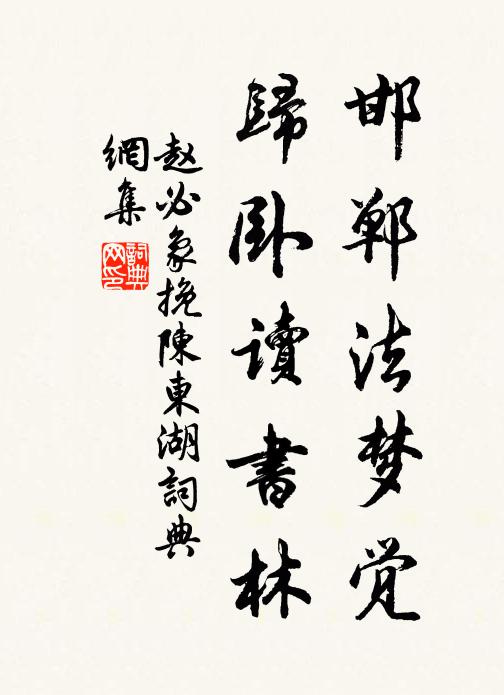 邯郸法梦觉
歸卧讀書林
赵必象挽陳東湖詞典
網集
詞典
网印